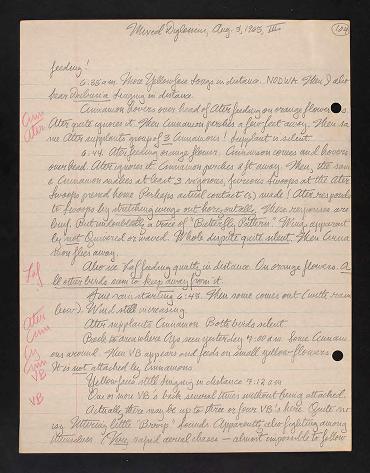 Mixed Diglossas, Aug. 3, 1965, III
104
feeding!
6:38 a.m. More Yellow-face Songs in distance. NO DWA. Then I also
hear singing in distance.
Cinnamon hovers over head of Ater feeding on orange flowers.
Ater quite ignores it. Then Cinnamon perches a few feet away. Then sa-
me Ater supplants group of 3 Cinnamons! Supplant is silent.
6:44. Ater feeding orange flower. Cinnamon comes and hovers
overhead. Ater ignores it. Cinnamon perches a ft. away. Then, the same
Cinnamon makes at least 3 vigorous, furious swoops at the Ater.
Swoops Perhaps actual contact (s) made! Ater responds
to swoops by stretching wings out horizontally. These responses are
brief. But undoubtedly a trace of "Butterfly Pattern". Wings apparent-
ly not Quivered or waved. Whole dispute quite silent. Then Cinna-
mon flies away.
Also see Laf feeding quietly in distance. On orange flowers. A-
ll other birds seem to keep away from it.
rain starting 6:48. Then some comes out (with rain-
bow). Wind still increasing.
Ater supplants Cinnamon. Both birds silent.
Back to area where Cy seen yesterday 7:00 am. Some Cinnam-
ons around. Then VB appears and feeds on small yellow flowers.
It is not attacked by Cinnamons.
Yellow-face still singing in distance 7:12 am
One or more VB's back several times without being attacked.
Actually there may be up to three or four VB's here. Quite no-
isy. Uttering little sounds. Apparently also fighting among
themselves. Very rapid aerial chases — almost impossible to follow
Cinn
Ater
Laf
Ater
Cinn
Cy
Cinn
VB
VB